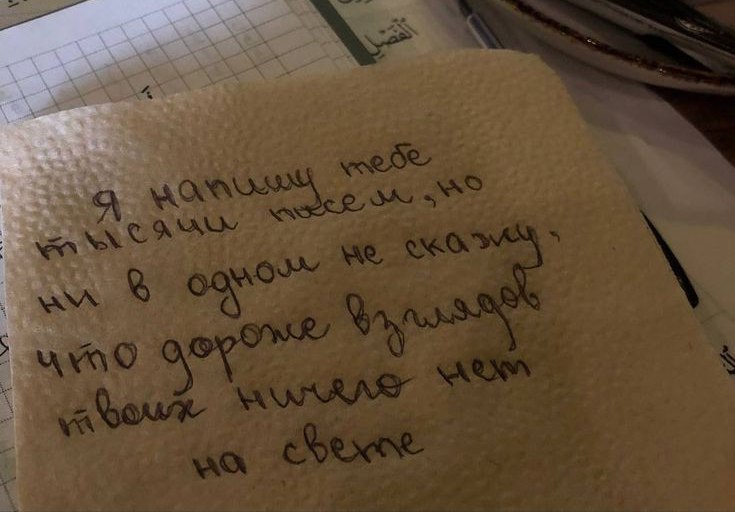 الفضيل
Я напишу тебе
тысячи писем, но
ни в одном не скажу,
что дороже взглядов
твоих ничего нет
на свете